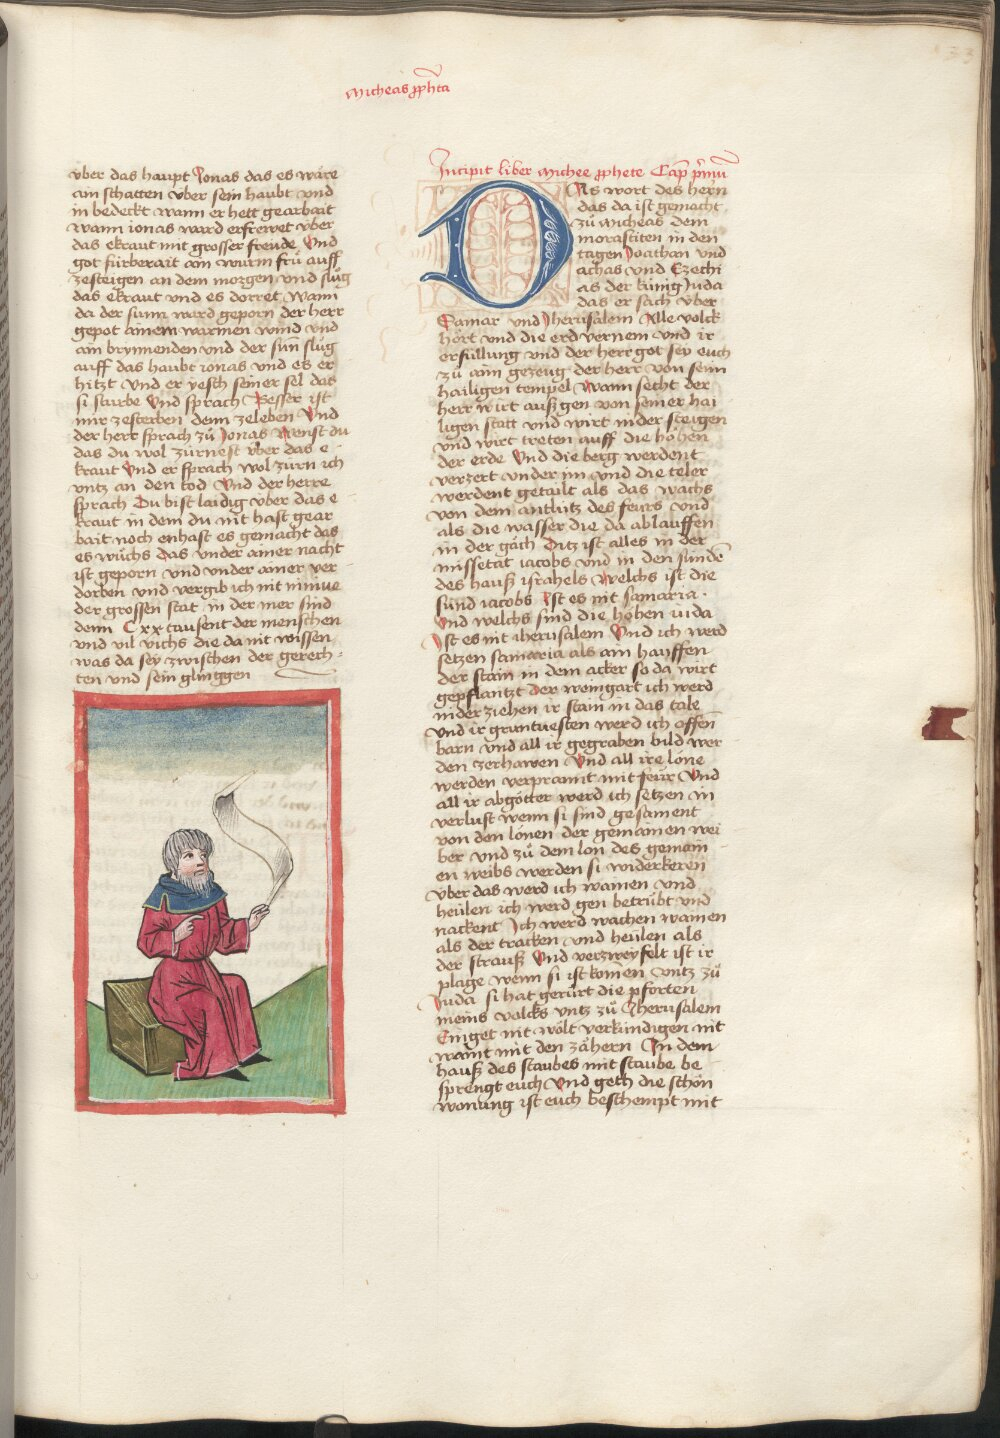 Micheas ꝓphēta
vber das haupt Jonas das es wäre
ain schatten vber sein haubt vnd
in bedeckt wann er hett gearbait
wann ionas ward erfrewet vber
das ekraut mit grosser freude Vnd
got fürberait ain wurm frü auff
zesteigen an dem morgen vnd slüg
das ekraut vnd es dorret Wann
da der sunn ward geporn der herr
gepot ainem warmen wind vnd
ain brynnenden vnd der sūn slüg
auff das haubt ionas vnd es er
hitzt Vnd er yesch seiner sel das
si sturbe Vnd sprach Pesser ist
mir zesterben denn zeleben Vnd
der herr sprach zů Jonas Wenst du
das du wol zürnest vber das e
kraut Vnd er sprach wol zürn ich
vntz an den tod Vnd der herre
sprach Du bist laidig vber das e
kraut in dem du nit hast gear
bait noch enhast es gemacht das
es wüchs das vnder ainer nacht
ist geporn vnd vnder ainer ver
dorben vnd vergib ich nit niniue
der grossen stat in der mer sind
denn Cxx tausent der menschen
vnd vil vichs die da nit wissen
was da sey zwischen der gerech-
ten vnd sein glinggen
Incipit liber Michee ꝓphete Cap̄ pr̄mū
DAs wort des hern
das da ist gemacht
zů Micheas dem
morastiten in den
tagen Joathan vnd
achas vnd Ezechi
as der künig Juda
das er sach vber
Samar vnd Jherusalem Alle volck
hört vnd die erd vernem vnd ir
erfüllung vnd der herr got sey euch
zů aim gezeug der herr von seim
hailigen tempel Wann secht der
herr wirt ausz gen von seiner hai
ligen statt vnd wirt nider steigen
vnd wirt treten auff die höhen
der erde Vnd die berg werdent
verzert vnder im vnd die teler
werdent getailt als das wachs
von dem antlutz des feurs vnd
als die wasser die da ablauffen
in der gäch Ditz ist alles in der
missetat iacobs vnd in den sündē
des hausz israhels Welchs ist die
sünd iacobs Ist es nit samaria.
Vnd welchs sind die höhen iuda
Ist es nit iherusalem Vnd ich werd
setzen samaria als ain hauffen
der stain in dem acker so da wirt
gepflantzt der weingart ich werd
nider ziehen ir stain in das tale
vnd ir gruntuesten werd ich offen
barn vnd all ir gegraben bild wer
den zerhawen Vnd all ire löne
werden verprannt mit feür Vnd
all ir abgötter werd ich setzen in
verlust wenn si sind gesament
von den lönen der gemainen wei
ber vnd zů dem lon des gemain
en weibs werden si widerkeren
vber das werd ich wainen vnd
heülen ich werd gen betrübt vnd
nackent Ich werd wachen wainen
als der tracken vnd heülen als
der strausz Vnd verzweyfelt ist ir
plage wenn si ist komen vntz zů
Juda si hat gerürt die pforten
meins volcks vntz zů Jherusalem
In get nit wölt verkündigen nit
waint mit den zähern In dem
hausz des staubes mit staube be
sprengt euch Vnd geth die schön
wonung ist euch beschempt mit